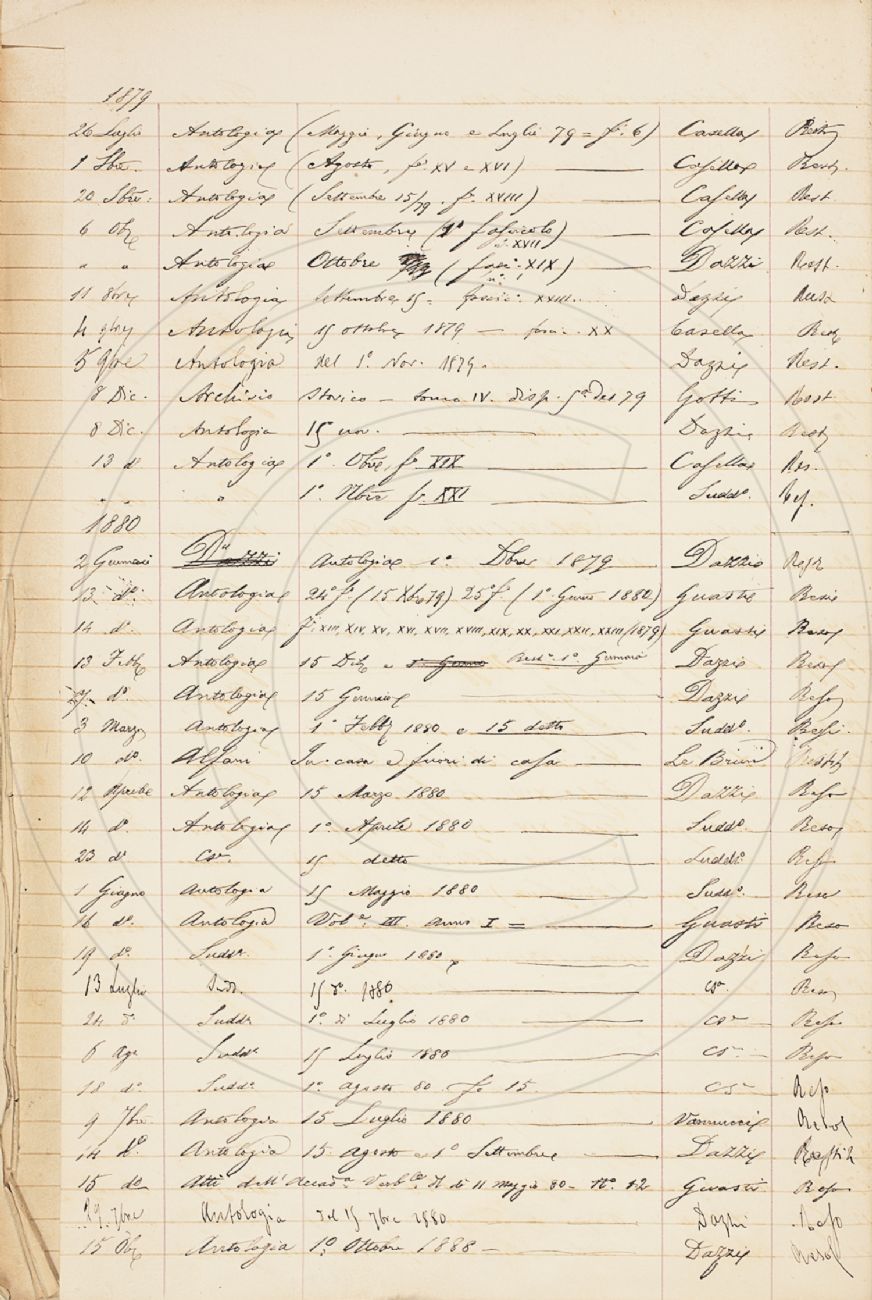 1879
26 Luglio Antologia (Maggio, Giugno e Luglio 79 = f. 6) Casella Rest.
1 Antologia (Agosto, f. XV e XVI) Casella Rest.
20 Antologia (Settembre 15/79. f. XVIII) Casella Rest.
6 Antologia Settembre (1° fascicolo) Casella Rest.
n. XVII
" " Antologia Ottobre (fasc. XIX) Dazzi Rest.
11 Antologia Settembre 15 fascic. XXIII. Dazzi Rest
4 Antologia 15 ottobre 1879 — fasc. XX Casella Rest
5 9bre Antologia del 1°. Nov. 1879. Dazzi Rest.
8 Dic. Archivio Storico — tomo IV. disp. 5a del 79 Gotti Rest
8 Dic. Antologia 15 nov. Dazzi Rest
13 d° Antologia 1° f. XIX Casella Res.
" " " 1° f. XXI Sudd°. Res.
1880
2 Gennaio Dazzi Antologia 1° Dbre 1879 Dazzi Rest
13 d° Antologia 24° f. (15 79) 25° f. (1° Genn° 1880) Guasti
14 d° Antologia f. XIII, XIV, XV, XVI, XVII, XVIII, XIX, XX, XXI, XXII, XXIII (1879) Guasti Reso
13 Febb Antologia 15 e 1° Gennaio 1° Gennaio Dazzi Reso
d° Antologia 15 Gennaio Dazzi Reso
3 Marzo Antologia 1° Febb 1880 e 15 detto Sudd°.
10 d° Alfani In casa e fuori di casa Le Brun
12 Aprile Antologia 15 Marzo 1880 Dazzi Reso
14 d° Antologia 1° Aprile 1880 Sudd°. Reso
23 d° 15 detto Sudd° Reso
1 Giugno Antologia 15 Maggio 1880 Sudd°. Reso
16 d°. Antologia III. Anno I = Guasti Reso
19 d° Sudda 1° Giugno 1880 Dazzi Reso
13 Luglio Sudd. 15 d°. 1880 Reso
24 d° Sudda 1° di Luglio 1880 Reso
6 Ago Sudda 15 Luglio 1880 Reso
18 d° Sudda 1° agosto 80 f° 15 Reso
9 7bre Antologia 15 Luglio 1880 Vannucci Reso
14 d° Antologia 15 agosto e 1° Settembre Dazzi
15 d° Atti dell' Accada di 11 maggio 80 — Guasti Reso
7bre Antologia del 15 7bre 1880 Dazzi Reso
15 Antologia 1° Ottobre 1888 — Dazzi Reso